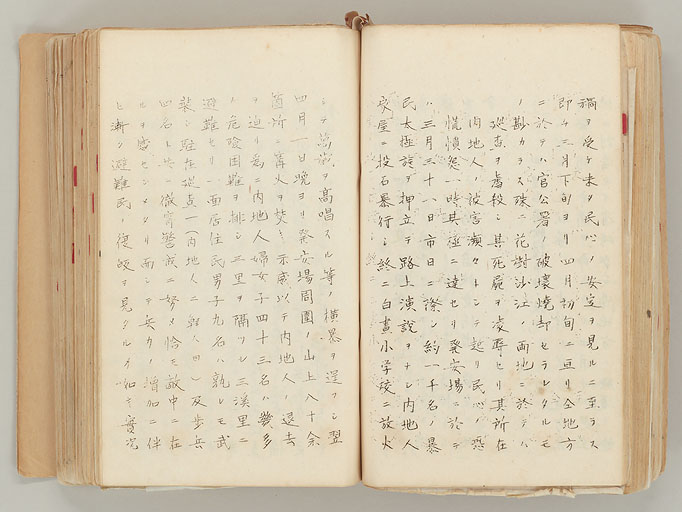 禍ヲ受ケ未タ民心ノ安定ヲ見ルニ至ラス
即チ三月下旬ヨリ四月初旬ニ亘リ全地方
ニ於テハ官公署ノ破壊焼却セラレタルモ
ノ尠カラス殊ニ花樹沙江ノ両地ニ於テハ
巡査ヲ虐殺シ其死屍ヲ凌辱セリ其所在
内地人ノ被害頻々トシテ起リ民心ノ恐
慌憤怨一時其極ニ達セリ発安場ニ於テ
ハ三月三十一日市日ニ際シ約一千名ノ暴
民太極旗ヲ押立テ路上演説ヲナシ内地人
家屋ニ投石暴行シ終ニ白昼小学校ニ放火
シテ萬歳ヲ高唱スル等ノ横暴ヲ逞フシ翌
四月一日晩ヨリ発安場周囲ノ山上八十余
箇所ニ篝火ヲ焚キ示威以テ内地人ノ退去
ヲ迫リ為ニ内地人婦女子四十三名ハ幾多
ノ危険困難ヲ排シ三里ヲ隔ツル三溪里ニ
避難セリ一面居住民男子九名ハ孰レモ武
装シ駐在巡査一(内地人ニ鮮人四)及歩兵
四名ト共ニ徹宵警戒ニ努メ恰モ敵中ニ在
ルヲ感セシメタリ而シテ兵力ノ増加ニ伴
ヒ漸ク避難民ノ復皈ヲ見タルカ如キ実况